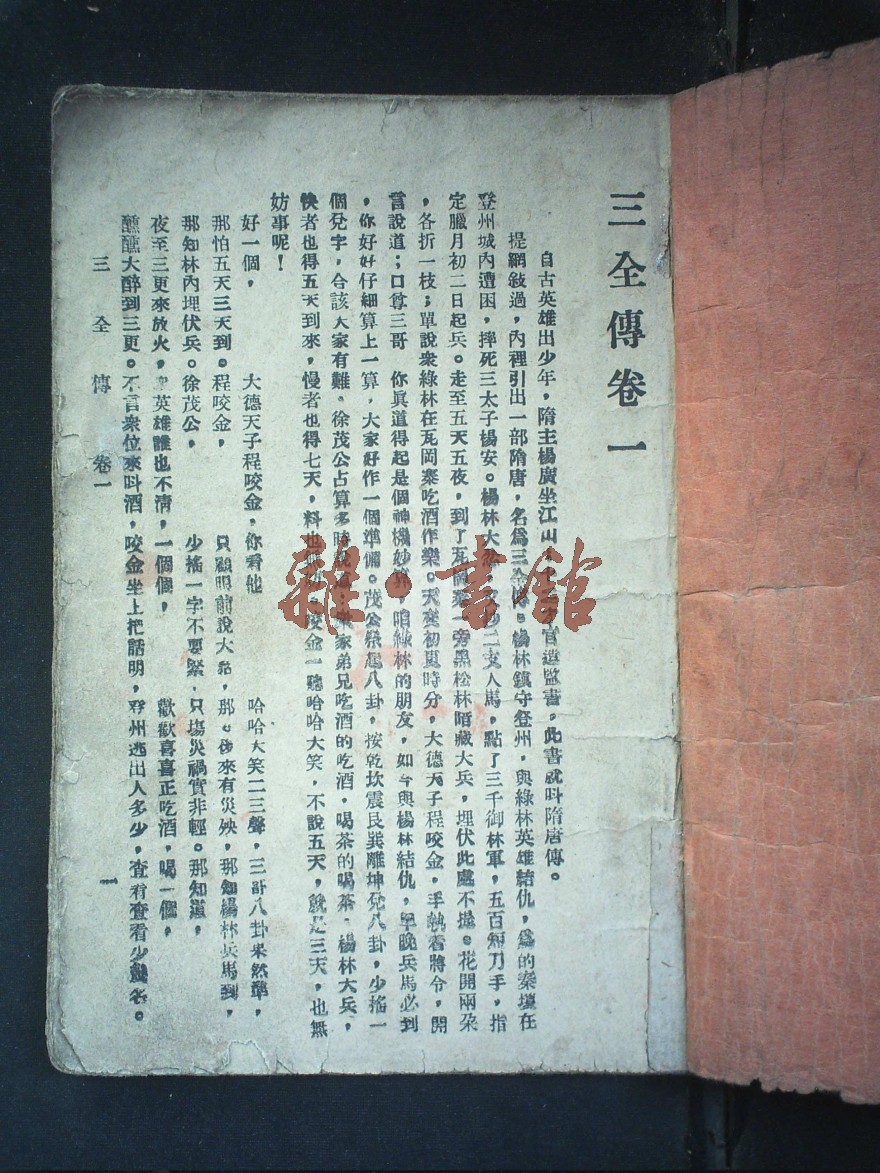 三全傳卷一
自古英雄出少年，隋主楊廣坐江山 官造監書，此書就呌隋唐傳。
提綱敍過，內裡引出一部隋唐，名爲三全傳。楊林鎮守登州，與綠林英雄結仇，爲的秦瓊在
登州城內遭困，摔死三太子楊安。楊林大怒 二支人馬，點了三千御林軍，五百短刀手，指
定臘月初二日起兵。走至五天五夜，到了瓦崗寨一旁黑松林晤藏大兵，埋伏此處不提。花開兩朵
，各折一枝；單說衆綠林在瓦岡寨吃酒作樂。天至初更時分，大德天子程咬金，手執着將令，開
言說道；口尊三哥 你眞道得起是個神機妙算，咱綠林的朋友，如今與楊林結仇，早晚兵馬必到
，你好好仔細算上一算，大家好作一個準備。茂公 八卦，按乾坎震艮巽離坤兌八卦，少搖一
個兌字，合該大家有難。徐茂公占算多時說道 衆家弟兄吃酒的吃酒，喝茶的喝茶，楊林大兵，
快者也得五天到來，慢者也得七天，料也無妨 咬金一聽哈哈大笑，不說五天，就是三天，也無
妨事呢！
好一個， 大德天子程咬金，你看他 哈哈大笑二三聲，三哥八卦果然準，
那怕五天三天到。程咬金， 只顧眼前說大話，那 後來有災殃，那知楊林兵馬到，
那知林內埋伏兵。徐茂公， 少搖一字不要緊，只塲災禍實非輕。那知道，
夜至三更來放火， 英雄誰也不清，一個個， 歡歡喜喜正吃酒，喝一個，
醺醺大醉到三更。不言衆位來呌酒，咬金坐上把話明，登州逃出人多少，查看查看少幾名。
三全傳 卷一 一
雜·書館